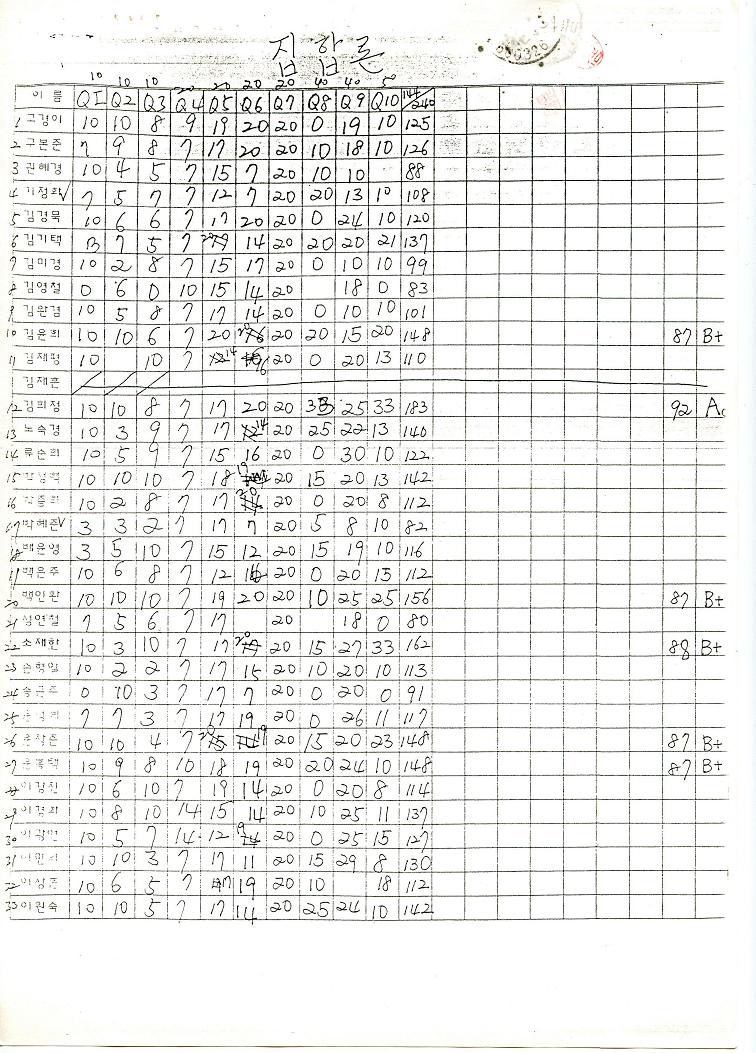 집합론
10 10 10 20 20 20 20 40 40 5
이름 Q1 Q2 Q3 Q4 Q5 Q6 Q7 Q8 Q9 Q10 240
1 고경이 10 10 8 9 19 20 20 0 19 10 125
2 구본준 7 9 8 7 17 20 20 10 18 10 126
3 권혜경 10 4 5 7 15 7 20 10 10 88
4 기정화√ 7 5 7 7 12 7 20 20 13 10 108
5 김경묵 10 6 6 7 17 20 20 0 24 10 120
6 김기택 13 7 5 7 20 14 20 20 20 21 137
7 김미경 10 2 8 7 15 17 20 0 10 10 99
8 김영철 0 6 0 10 15 14 20 18 0 83
9 김완겸 10 5 8 7 17 14 20 0 10 10 101
10 김윤희 10 10 6 7 20 20 20 20 15 20 148 87 B+
11 김재평 10 10 7 14 16 20 0 20 13 110
김재훈
12 김희정 10 10 8 7 17 20 20 33 25 33 183 92 A
13 노숙경 10 3 9 7 17 14 20 25 22 13 140
14 류순희 10 5 9 7 15 16 20 0 30 10 122
15 10 10 10 7 18 19 20 15 20 13 142
16 10 2 8 7 17 20 20 0 20 8 112
17 박혜준√ 3 3 2 7 17 7 20 5 8 10 82
18 배윤영 3 5 10 7 15 12 20 15 19 10 116
19 백은주 10 6 8 7 12 16 20 0 20 13 112
20 백인환 10 10 10 7 19 20 20 10 25 25 156 87 B+
21 성연철 7 5 6 7 17 20 18 0 80
22 소재환 10 3 10 7 17 20 20 15 27 33 162 88 B+
23 손형일 10 2 2 7 17 15 20 10 20 10 113
24 송근주 0 10 3 7 17 7 20 0 20 0 91
25 7 7 3 7 17 19 20 0 26 11 117
26 10 10 4 7 20 19 20 15 20 23 148 87 B+
27 10 9 8 10 18 19 20 20 24 10 148 87 B+
10 6 10 7 19 14 20 0 20 8 114
29 이경희 10 8 10 14 15 14 20 10 25 11 137
30 10 5 7 14 12 19 20 0 25 15 127
31 10 10 3 7 17 11 20 15 29 8 130
32 10 6 5 7 17 19 20 10 18 112
33 이원숙 10 10 5 7 17 14 20 25 24 10 142